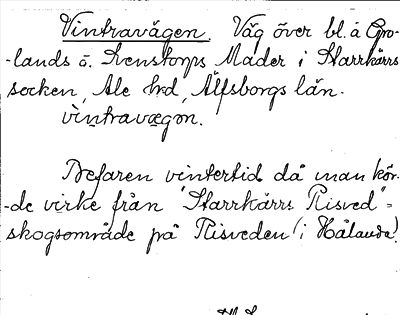 Vintravägen. Väg över bl. a Gro-
-lands o. Svenstorps Mader i Starrkärrs
socken, Ale hrd, Älfsborgs län.
vìntravægən.
Befaren vintertid då man kör-
-de virke från "Starrkärrs Risved" =
skogsområde på Risveden (i Hålanda).